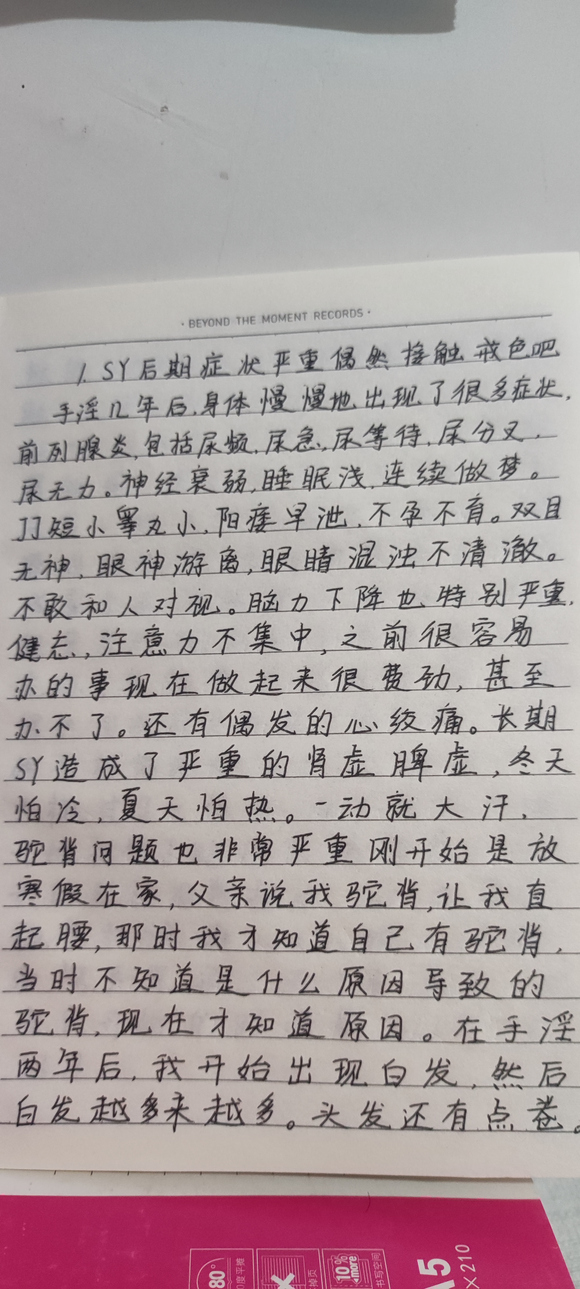 · BEYOND THE MOMENT RECORDS ·
1. SY后期症状严重偶然接触戒色吧
手淫几年后,身体慢慢地出现了很多症状,
前列腺炎,包括尿频,尿急,尿等待,尿分叉,
尿无力。神经衰弱,睡眠浅,连续做梦。
JJ短小睾丸小,阳痿早泄,不孕不育。双目
无神,眼神游离,眼睛混浊不清澈。
不敢和人对视。脑力下降也特别严重,
健忘,注意力不集中,之前很容易
办的事现在做起来很费劲,甚至
办不了。还有偶发的心绞痛。长期
SY造成了严重的肾虚脾虚,冬天
怕冷,夏天怕热。一动就大汗,
驼背问题也非常严重刚开始是放
寒假在家,父亲说我驼背,让我直
起腰,那时我才知道自己有驼背,
当时不知道是什么原因导致的
驼背,现在才知道原因。在手淫
两年后,我开始出现白发,然后
白发越多来越多。头发还有点卷。
80°
10%
more
书写空间
A5
×210